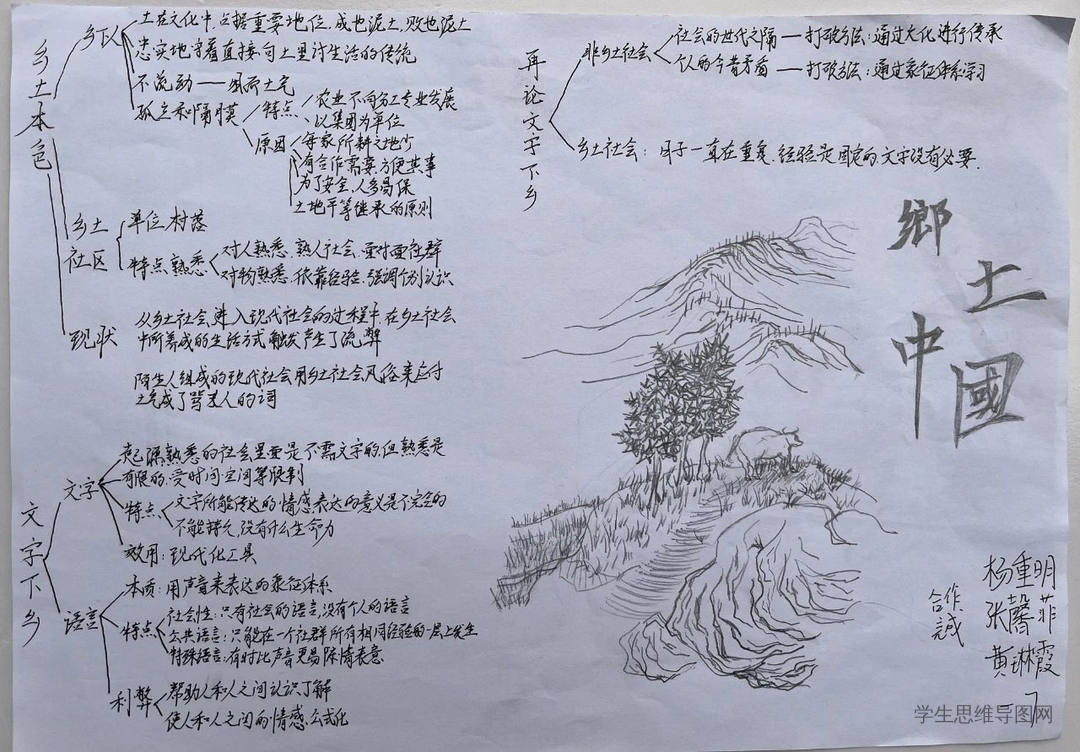 乡土本色
乡下人
土在文化中,占据重要地位,成也泥土,败也泥土
忠实地守着直接向土里讨生活的传统
不流动——风蚀土气
孤立和隔膜
特点
农业不向分工专业发展
以集团为单位
原因
每家所耕之地少
有合作需要,方便共事
为了安全,人多易保
土地平等继承的原则
乡土社区
单位,村落
特点,熟悉
对人熟悉,熟人社会,面对面社群
对物熟悉,依靠经验,强调个别认识
现状
从乡土社会进入现代社会的过程中,在乡土社会
中所养成的生活方式触发产生了流弊
陌生人组成的现代社会用乡土社会风俗来应付
土气成了骂人的词
文字下乡
文字
起源,熟悉的社会里面是不需文字的,但熟悉是
有限的,受时间,空间等限制
特点
文字所能传达的情感表达的意义是不完全的
不能持久,没有什么生命力
效用:现代化工具
语言
本质:用声音来表达的象征体系
特点
社会性:只有社会的语言,没有个人的语言
公共语言:只能在一个社群所有相同经验的一层上发生
特殊语言:有时比声音更易传情表意
利弊
帮助人和人之间认识了解
使人和人之间的情感,公式化
再论文字下乡
非乡土社会
社会的世代之隔——打破方法:通过文化进行传承
个人的今昔矛盾——打破方法:通过象征体系学习
乡土社会:日子一直在重复,经验是固定的,文字没有必要.
鄉土中國
杨重明
张馨菲
黄琳霞
合作
学生思维导图网